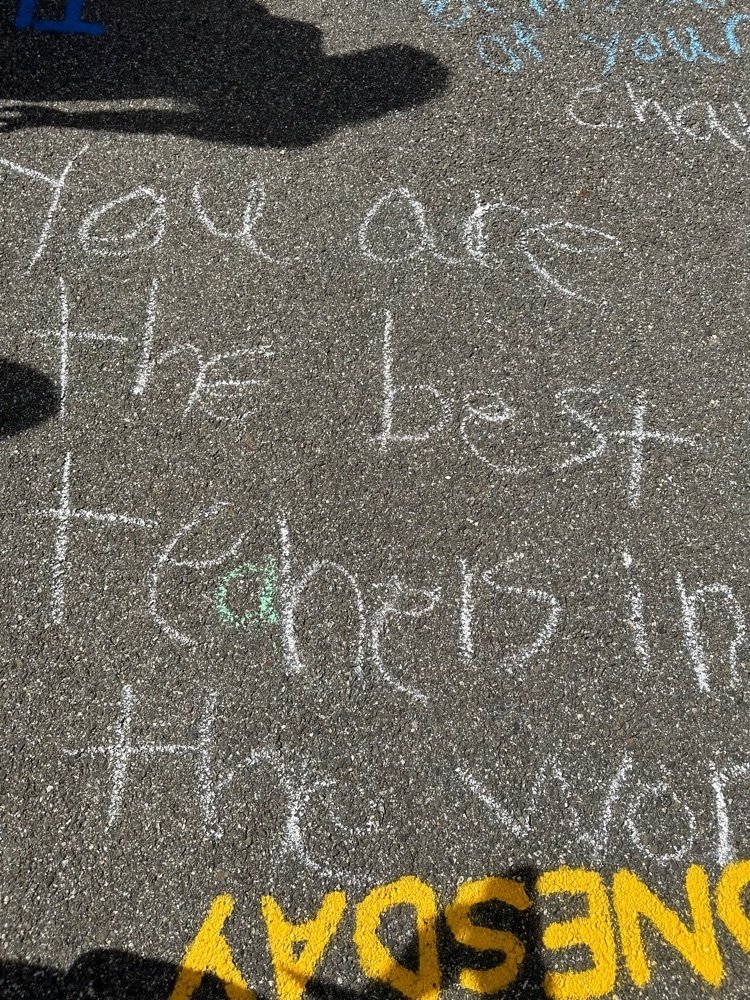 of your
You are
the best
teahers in
the wor
NESDAY